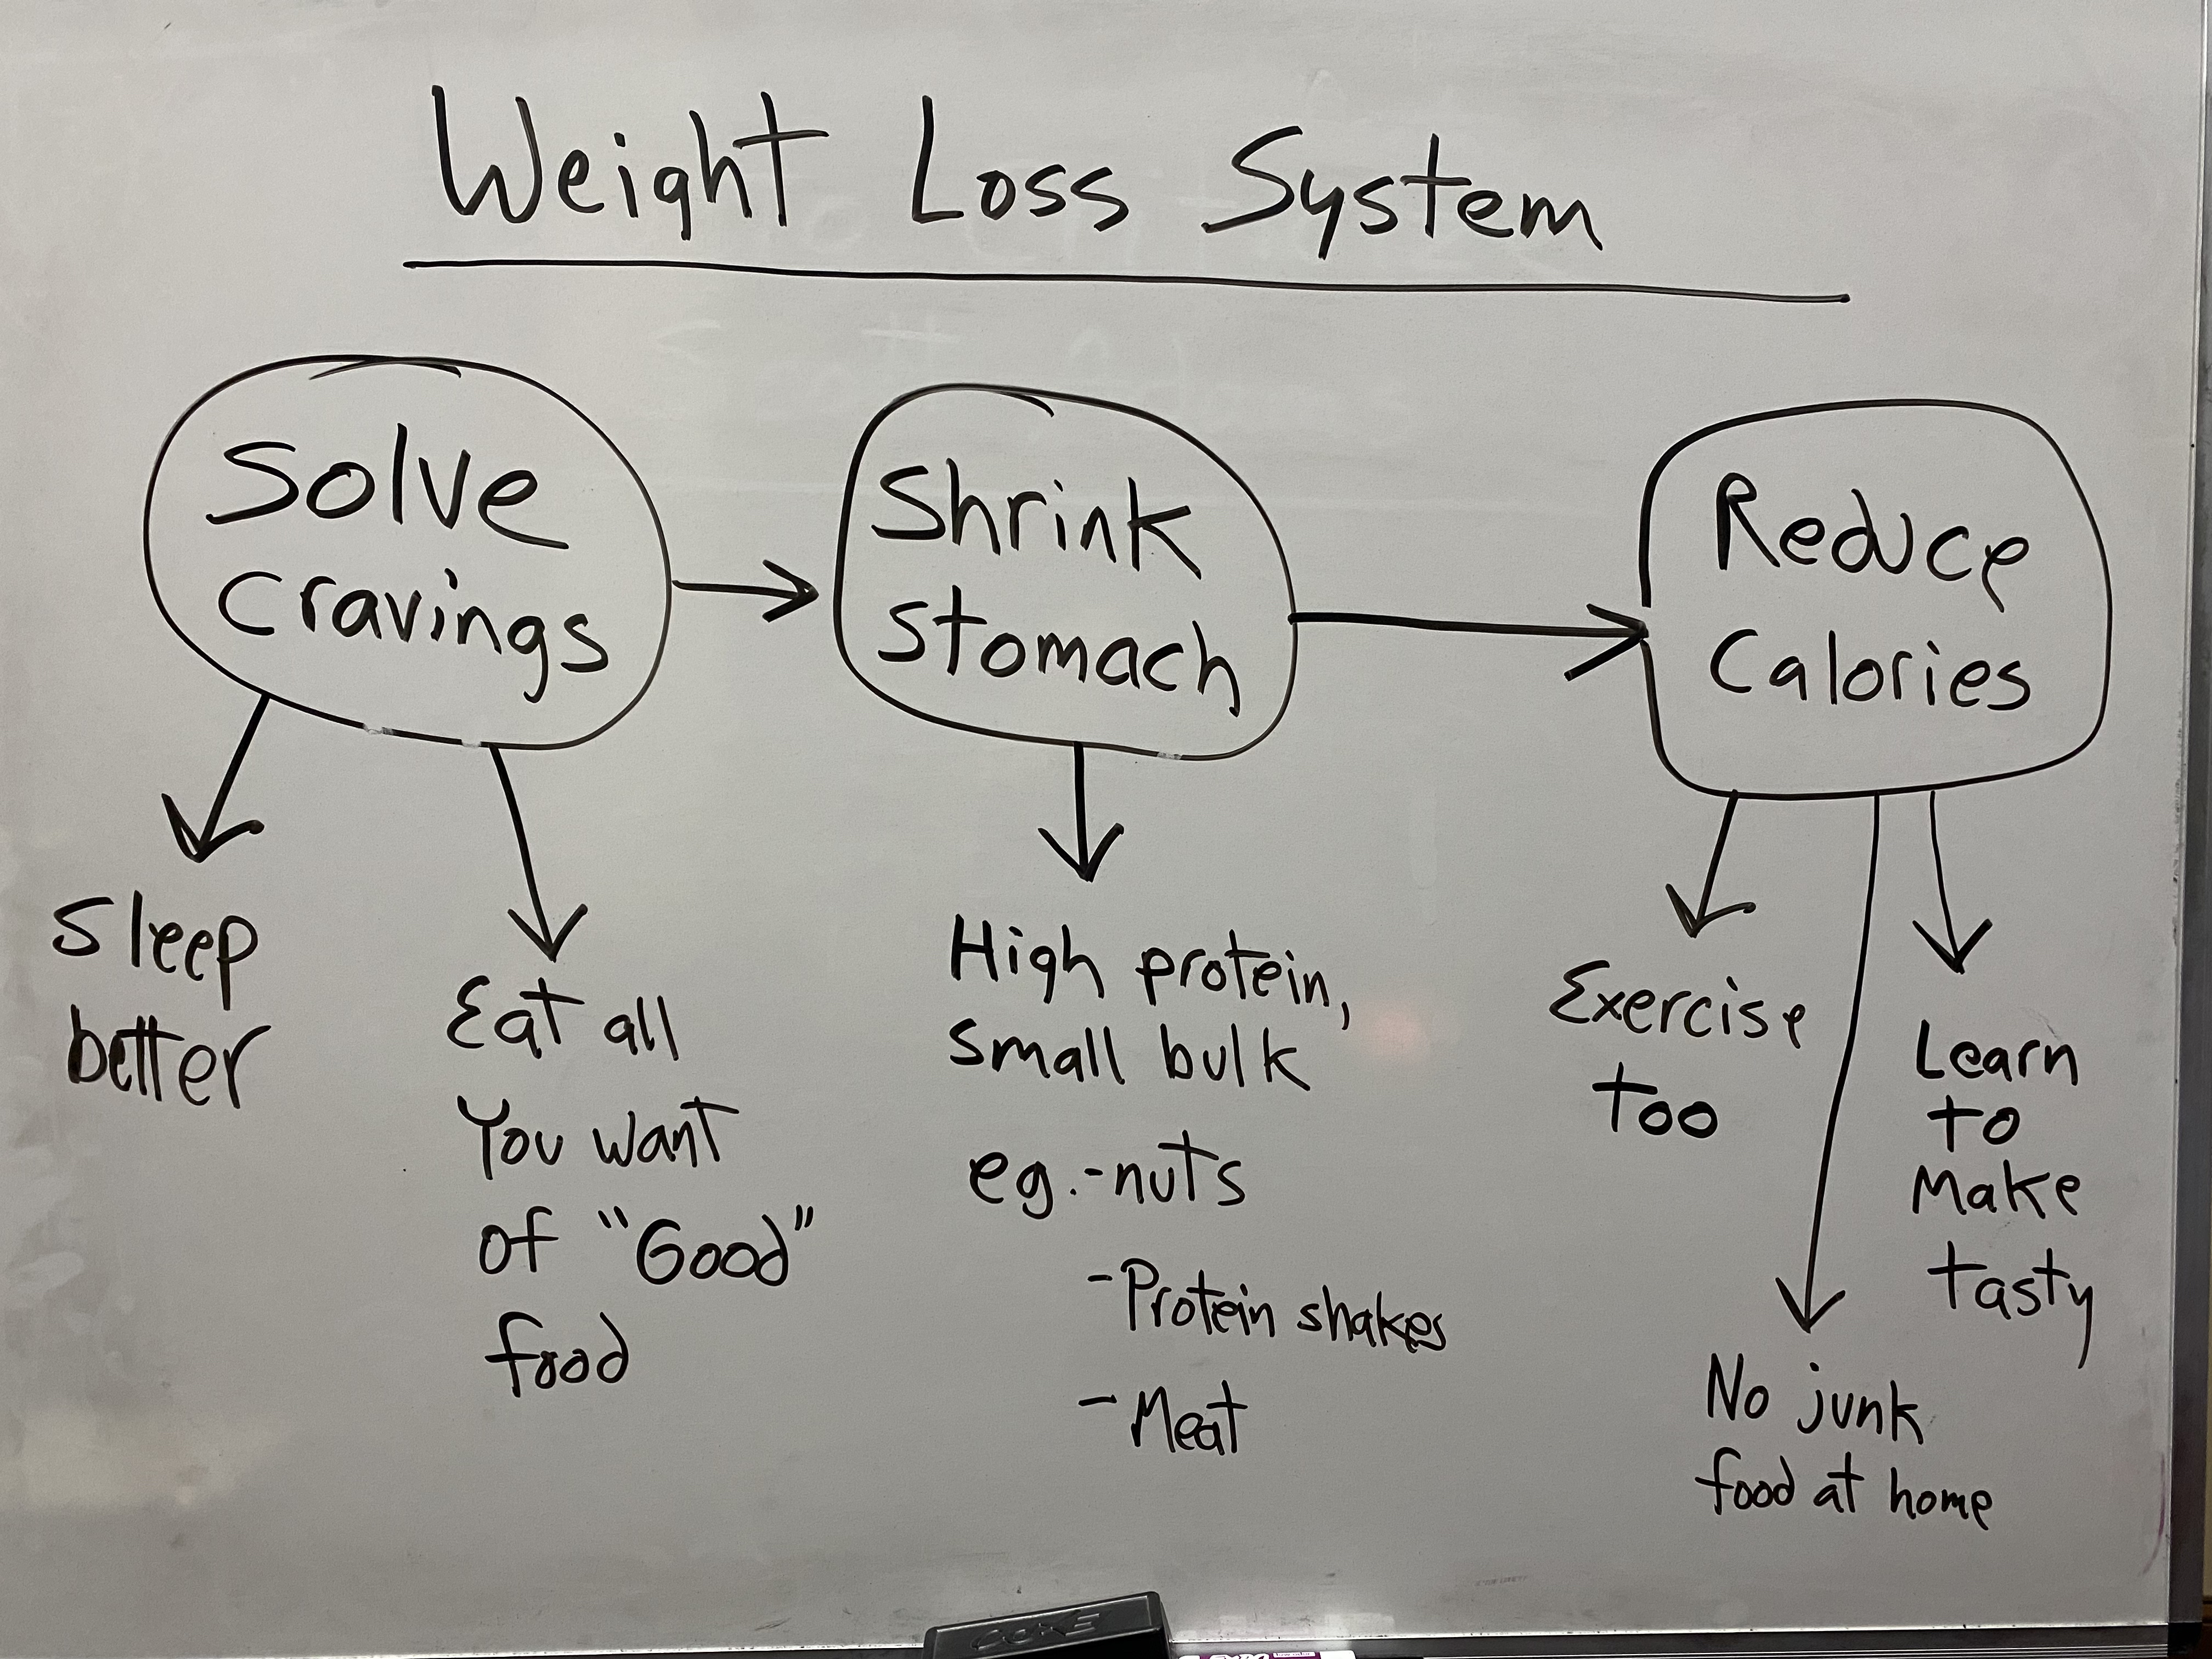 Weight Loss System
Solve
Cravings
Shrink
Stomach
Reduce
Calories
Sleep
better
Eat all
You want
of "Good"
food
High protein,
small bulk
eg.-nuts
-Protein shakes
-Meat
Exercise
too
No junk
food at home
Learn
to
Make
tasty
CORE
EXPO